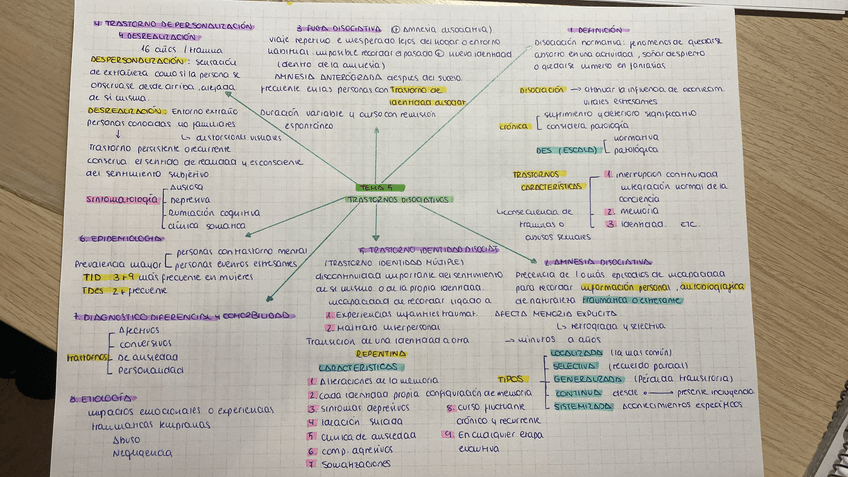 TEMA 5
TRASTORNOS DISOCIATIVOS
1. DEFINICIÓN
Disociación normativa: fenómenos de quedarse
absorto en una actividad, soñar despierto
o quedarse inmerso en fantasías
DISOCIACIÓN → atenuar la influencia de acontecim.
vitales estresantes
crónica
sufrimiento y deterioro significativo
considera patología
DES (ESCALA)
normativa
patológica
TRASTORNOS
CARACTERÍSTICAS
1. interrupción continuidad
integración normal de la
conciencia
2. memoria
3. identidad etc.
↳consecuencia de
traumas o
abusos sexuales
2. AMNESIA DISOCIATIVA
Presencia de 1 o más episodios de incapacidad
para recordar información personal, autobiográfica
de naturaleza traumática o estresante
AFECTA MEMORIA EXPLÍCITA
↳ retrógrada y selectiva
→ minutos a años
TIPOS
LOCALIZADA (la más común)
SELECTIVA (recuerdo parcial)
GENERALIZADA (Pérdida transitoria)
CONTINUA desde → presente incluyencia
SISTEMIZADA acontecimientos específicos
3. FUGA DISOCIATIVA (+ amnesia disociativa)
viaje repentino e inesperado lejos del hogar o entorno
habitual imposible recordar el pasado + nueva identidad
(dentro de la amnesia)
AMNESIA ANTERÓGRADA después del suceso
frecuente en las personas con Trastorno de
identidad disociat.
Duración variable y curso con remisión
espontánea
4. TRASTORNO DE PERSONALIZACIÓN
Y DESREALIZACIÓN
16 años / trauma
DESPERSONALIZACIÓN: sensación
de extrañeza como si la persona se
observase desde arriba, alejada
de sí misma.
DESREALIZACIÓN: Entorno extraño
personas conocidas no familiares
↳ distorsiones visuales
Trastorno persistente o recurrente
conserva el sentido de realidad y es consciente
del sentimiento subjetivo
SINTOMATOLOGÍA
Ansiosa
Depresiva
Rumiación cognitiva
clínica somática
5. TRASTORNO IDENTIDAD DISOCIAT
(TRASTORNO IDENTIDAD MÚLTIPLE)
discontinuidad importante del sentimiento
de sí mismo o de la propia identidad
incapacidad de recordar ligado a
1. Experiencias infantiles traumat.
2. Maltrato interpersonal
Transición de una identidad a otra
REPENTINA
CARACTERÍSTICAS
1. Alteraciones de la memoria
2. Cada identidad propia configuración de memoria
3. síntomas depresivos
4. Ideación suicida
5. clínica de ansiedad
6. comp. agresivos
7. Somatizaciones
8. curso fluctuante
crónico y recurrente
9. En cualquier etapa
evolutiva
6. EPIDEMIOLOGÍA
Prevalencia mayor
personas con trastorno mental
personas eventos estresantes
TID 3 + 9 más frecuente en mujeres
TDes 2 + frecuente
7. DIAGNÓSTICO DIFERENCIAL y COMORBILIDAD
trastornos
Afectivos
conversivos
de ansiedad
Personalidad
8. ETIOLOGÍA
impactos emocionales o experiencias
traumáticas tempranas
Abuso
Negligencia